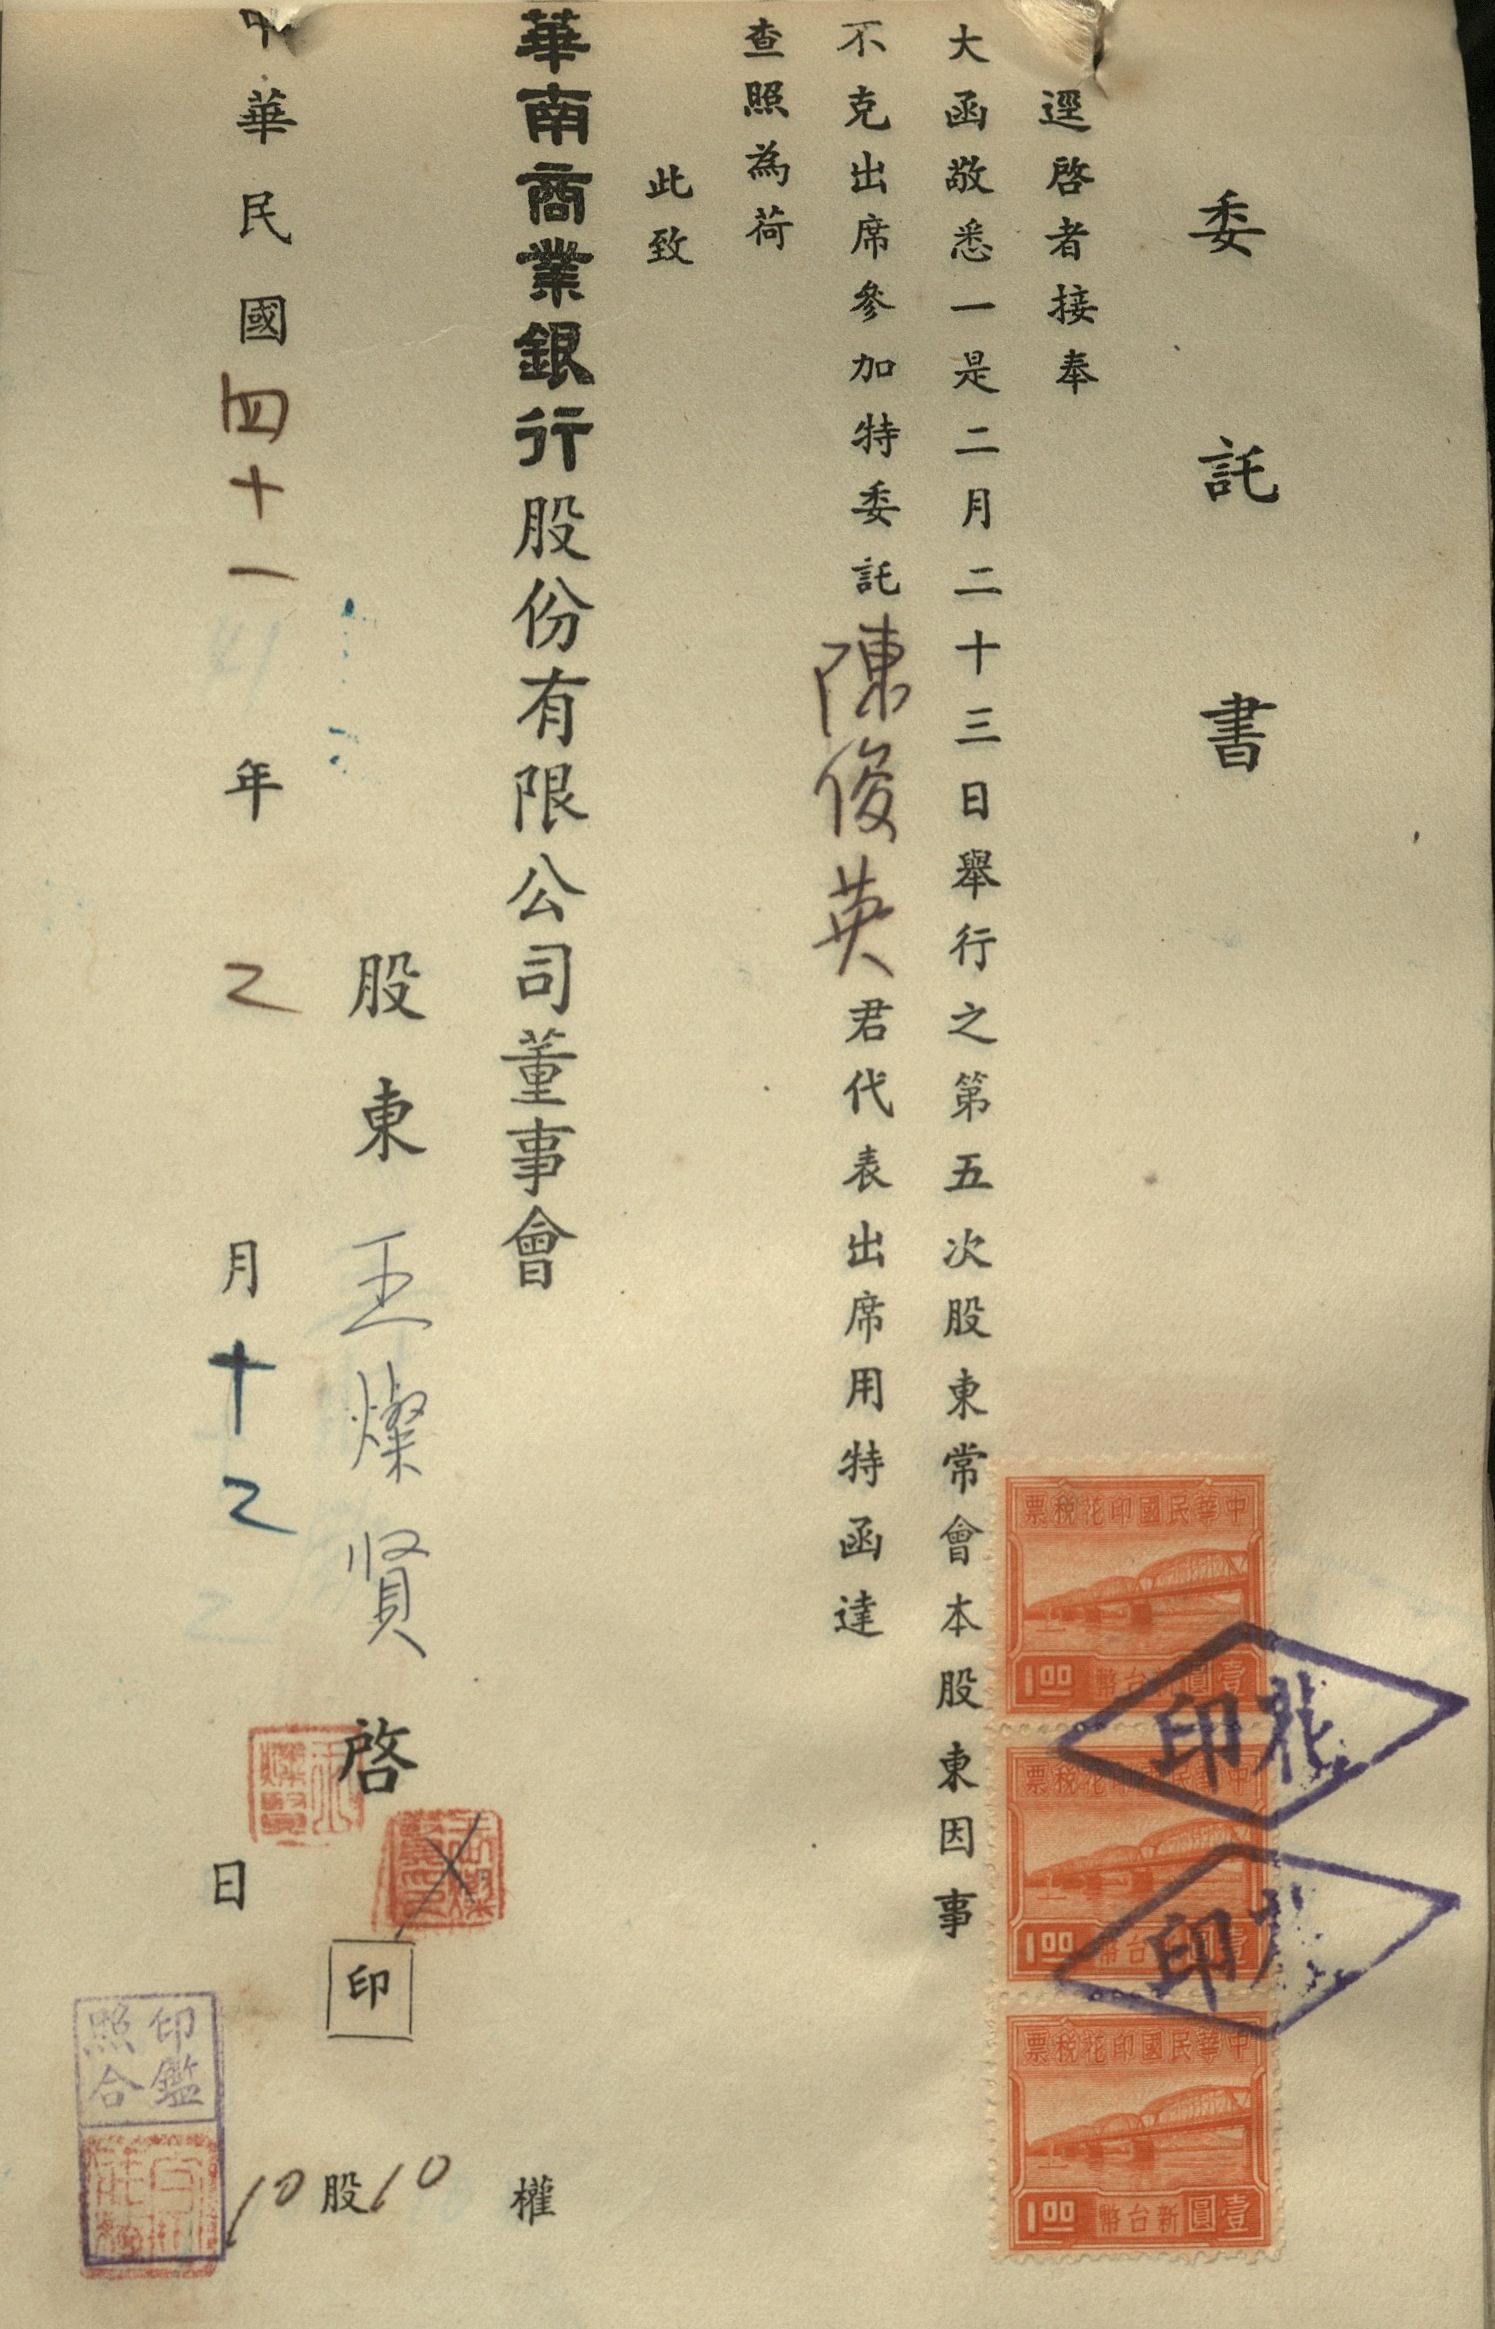 委託書
逕啓者接奉
大函敬悉一是二月二十三日舉行之第五次股東常會本股東因事
不克出席參加特委託陳俊英君代表出席用特函達
查照為荷
此致
華南商業銀行股份有限公司董事會
股東王燦賢啓
印
中華民國四十一年乙月十乙日
10股10權
印鑑
照合
票稅花印國民華中
1.00 幣台新圓壹
票稅花印國民華中
1.00 幣台新圓壹
票稅花印國民華中
1.00 幣台新圓壹
印花
印花